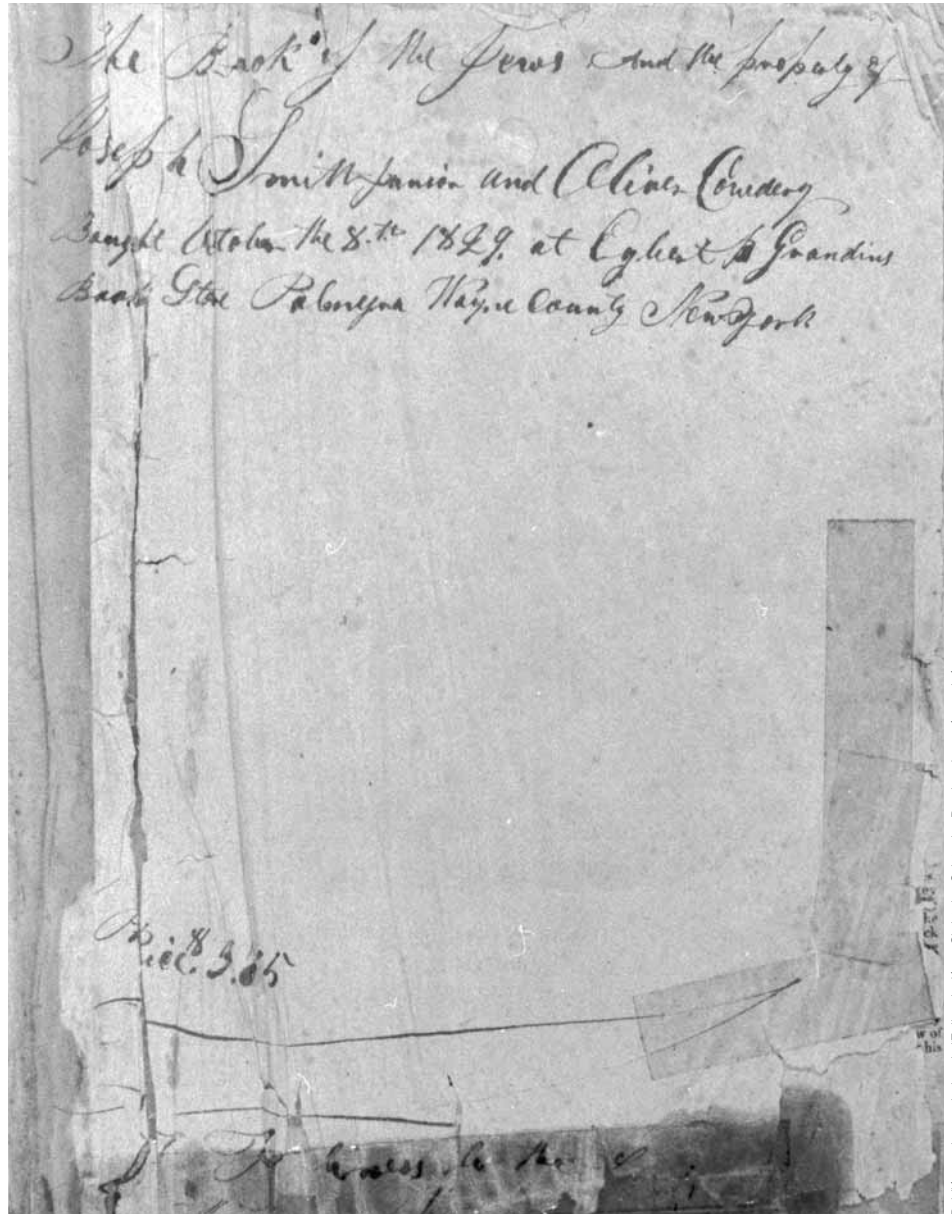 The Book of the Jews And the property of
Joseph Smith Junior and Oliver Cowdery
Bought October the 8.th 1829. at Egbert B Grandins
Book Store Palmyra Wayne County New York
Price. $3.75
to the
w of
his